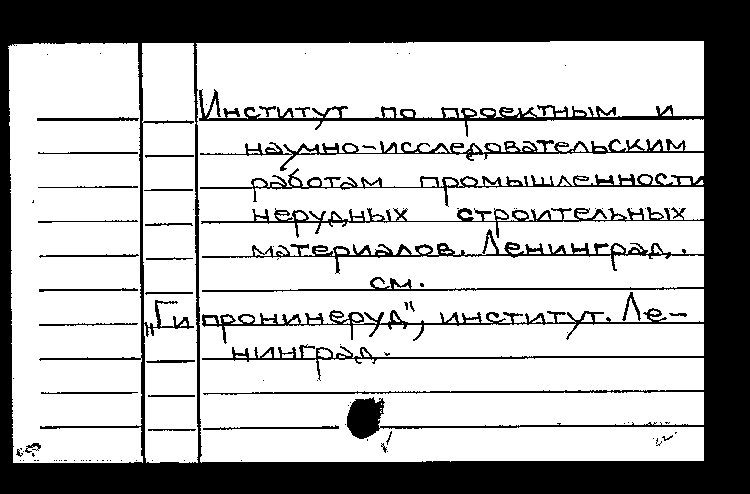 Институт по проектным и
научно-исследовательским
работам промышленности
нерудных строительных
материалов. Ленинград.
см.
"Гипронинеруд", институт. Ле-
нинград.